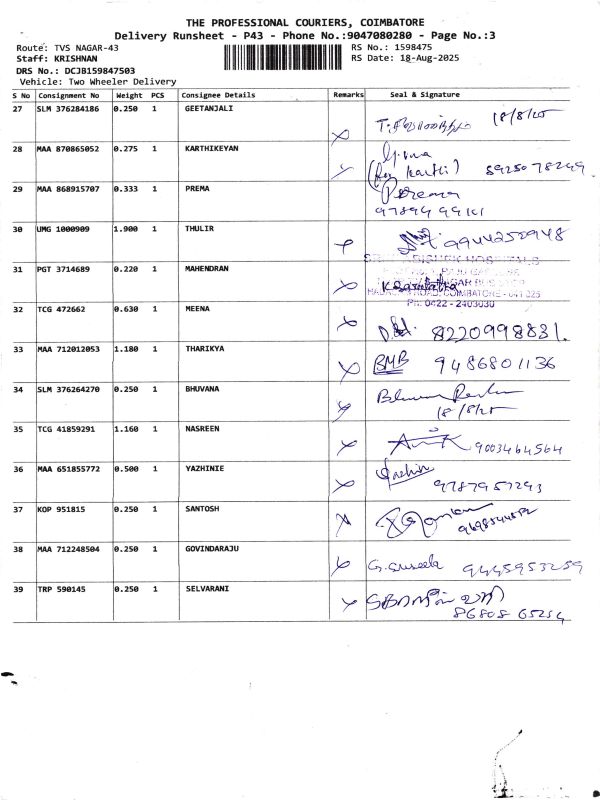 THE PROFESSIONAL COURIERS, COIMBATORE
Delivery Runsheet - P43 - Phone No.:9047080280 - Page No.:3
Route: TVS NAGAR-43 RS No.: 1598475
Staff: KRISHNAN RS Date: 18-Aug-2025
DRS No.: DCJB159847503
Vehicle: Two Wheeler Delivery
S No Consignment No Weight PCS Consignee Details Remarks Seal & Signature
27 SLM 376284186 0.250 1 GEETANJALI 18/8/25
28 MAA 870865052 0.275 1 KARTHIKEYAN
29 MAA 868915707 0.333 1 PREMA
30 UMG 1000909 1.900 1 THULIR 9944250948
31 PGT 3714689 0.220 1 MAHENDRAN
Ph: 0422 - 2403030
32 TCG 472662 0.630 1 MEENA 8220998831.
33 MAA 712012053 1.180 1 THARIKYA BMB 9486801136
34 SLM 376264270 0.250 1 BHUVANA
18/8/25
35 TCG 41859291 1.160 1 NASREEN 9003464564
36 MAA 651855772 0.500 1 YAZHINIE
9787957293
37 KOP 951815 0.250 1 SANTOSH
38 MAA 712248504 0.250 1 GOVINDARAJU 9445953259
39 TRP 590145 0.250 1 SELVARANI
86808 65254